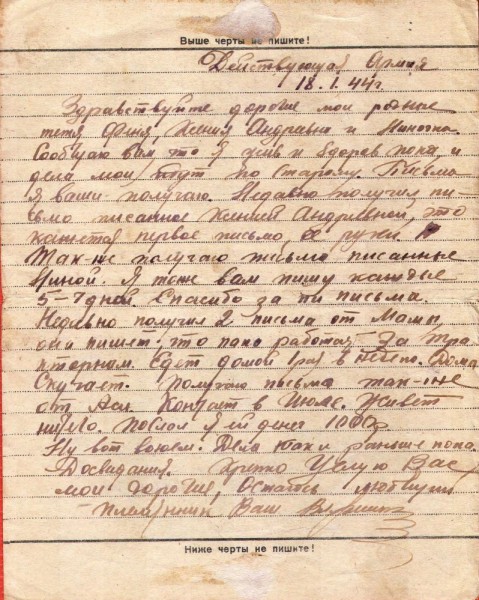 Выше черты не пишите!
Действующая Армия
18.1.44г
Здравствуйте дорогие мои родные
тетя Феня, Ксения Андревна и Ниночка.
Сообщаю Вам что я жив и здоров пока, и
дела мои идут по старому. Письма
я ваши получаю. Недавно получил пи-
сьмо писанное Ксенией Андревной, это
кажется первое письмо её руки.
Так-же получаю письма писанные
Ниной. Я тоже вам пишу каждые
5-7 дней. Спасибо за ти письма.
Недавно получил 2 письма от Мамы
она пишет, что папа работает За
Едет домой 1 раз в неделю. Дома
Скучает. Получаю письма так-же
от Аси. Кончает в Июле. Живет
ничего. Послал я ей денег 1000р
Ну вот воюем. Дела так и раньше пока.
Досвидания. Крепко Целую Вас
мои дорогие, Остаюсь любящий
племянник Ваш
Ниже черты не пишите!